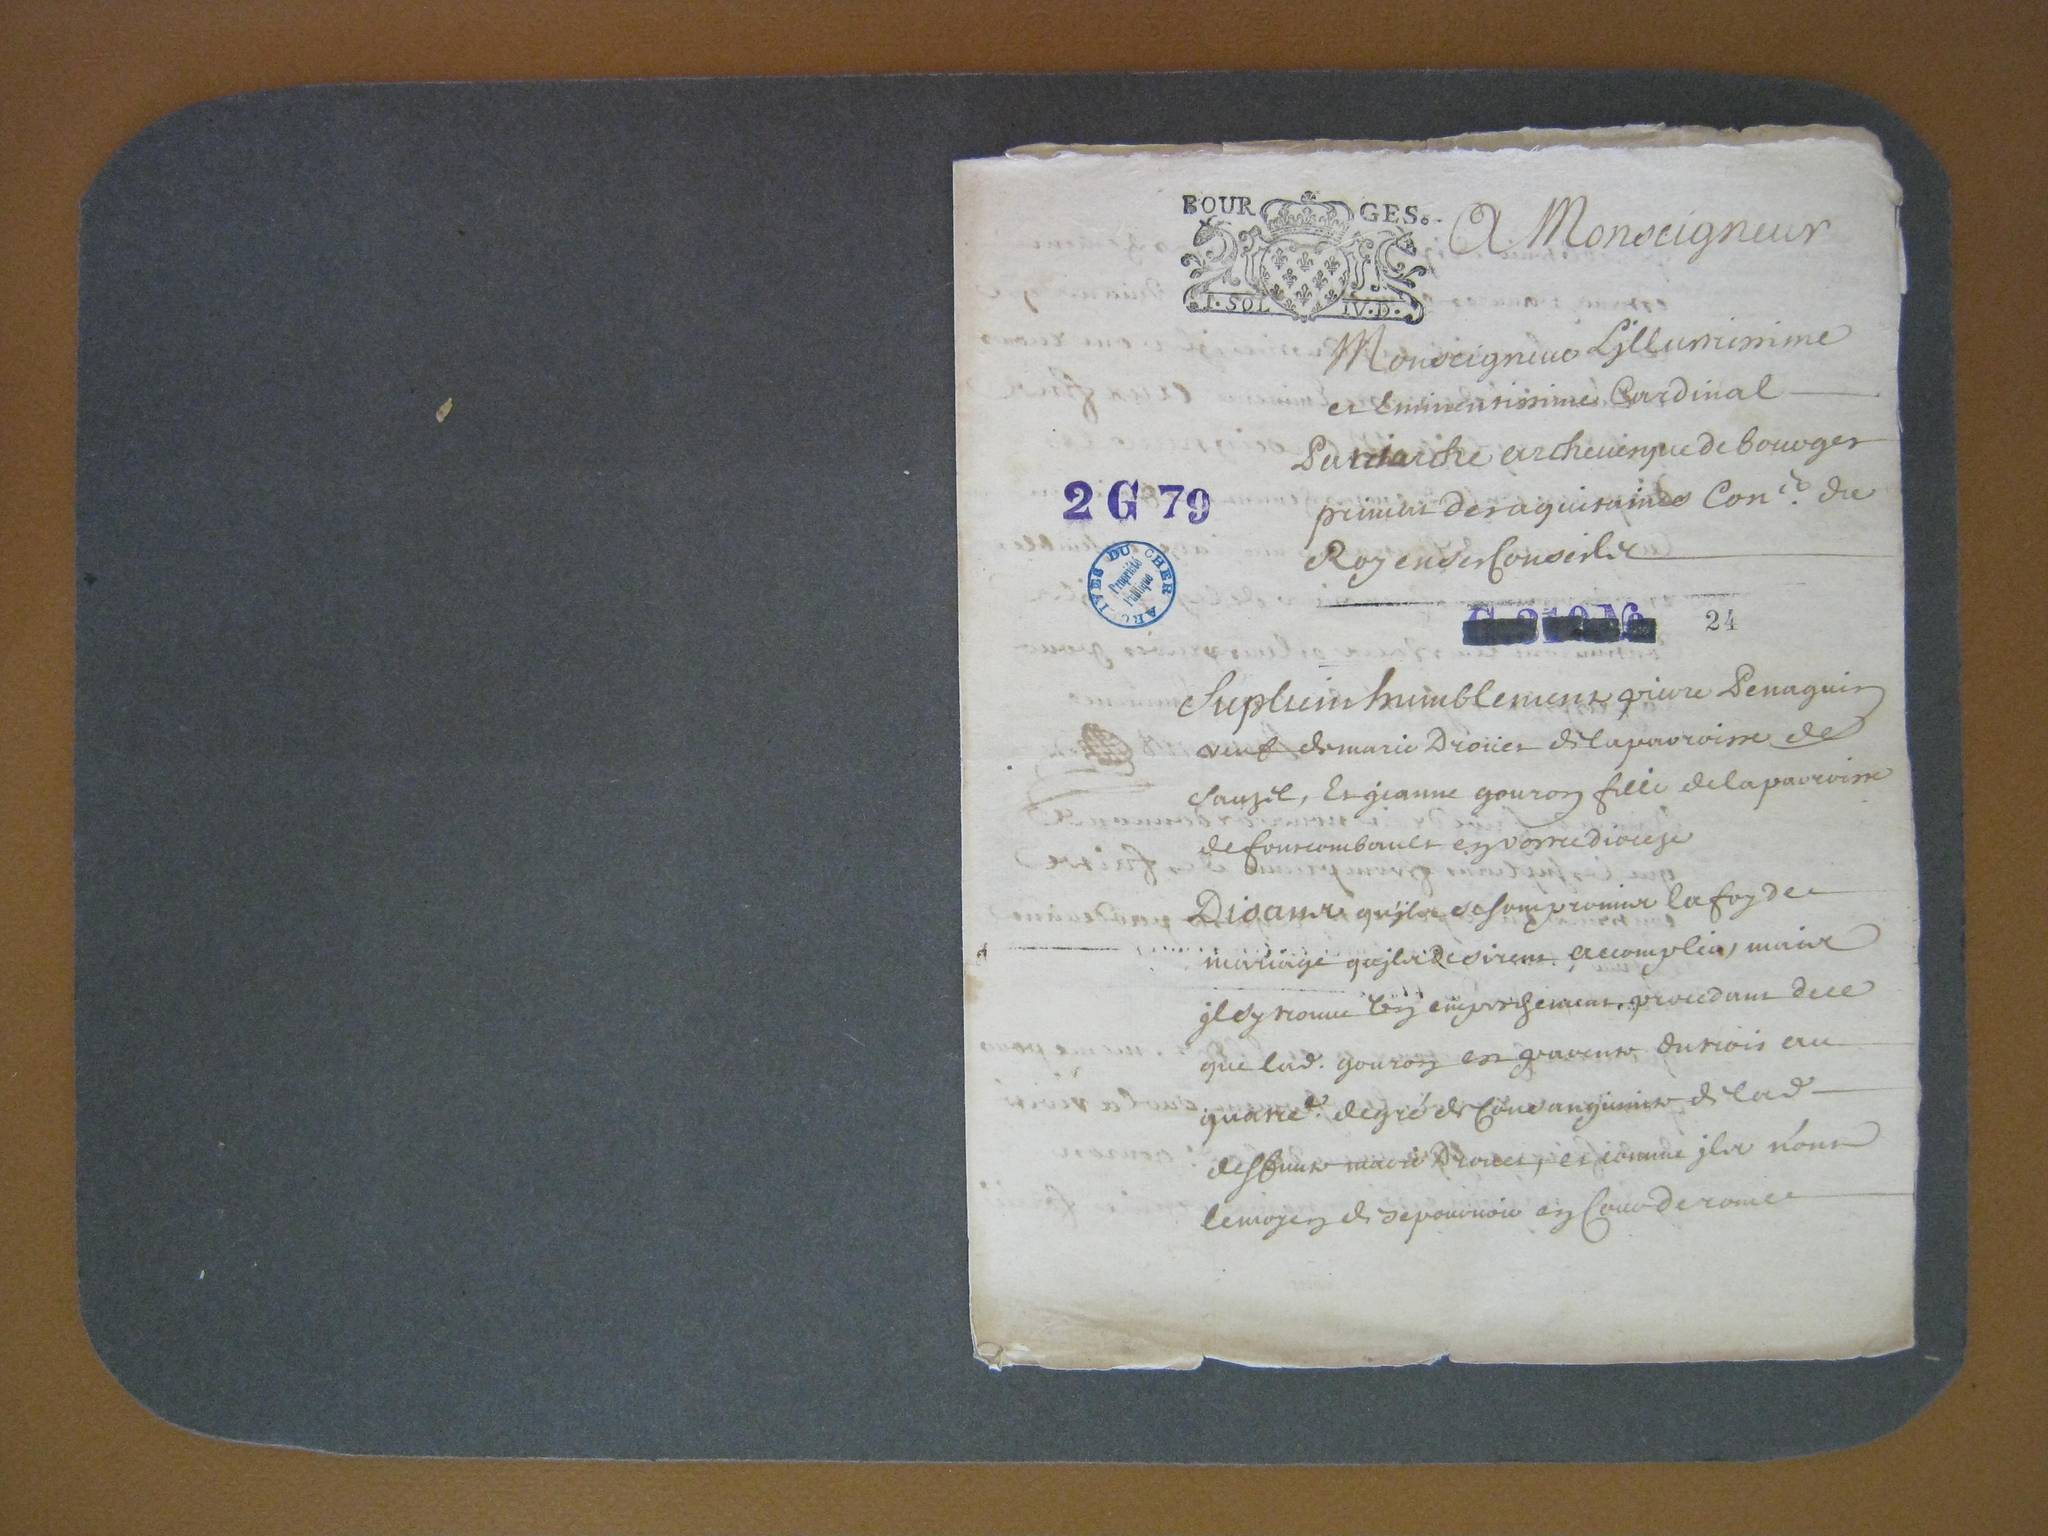 BOURGES.
I. SOL IV. D.
A Monseigneur
Monseigneur Lillustrissime
et Eminentissime Cardinal
Patriarche archevesque de bourges
primat des aquitaines Con.er du
Roy en ses Conseils
2 G 79
ARCHIVES DU CHER
Propriété
Publique
24
Suplient humblement pierre Penaguin
veuf de marie Droüet de la parroisse de
Sauzil, Et jeanne gouron fille de la parroisse
de fourcombault en vostre dioceze
Disants qu'jls se sont promis la foy de
mariage qu'jls desirent accomplir, mais
jl sy trouve un empeschement procedant de ce
que lad. gouron est parente du trois au
quatre.e degré de Consanguinité de lad
deffunte marie Droüet, et comme jls n'ont
le moyen de se pourvoir en Cour de rome